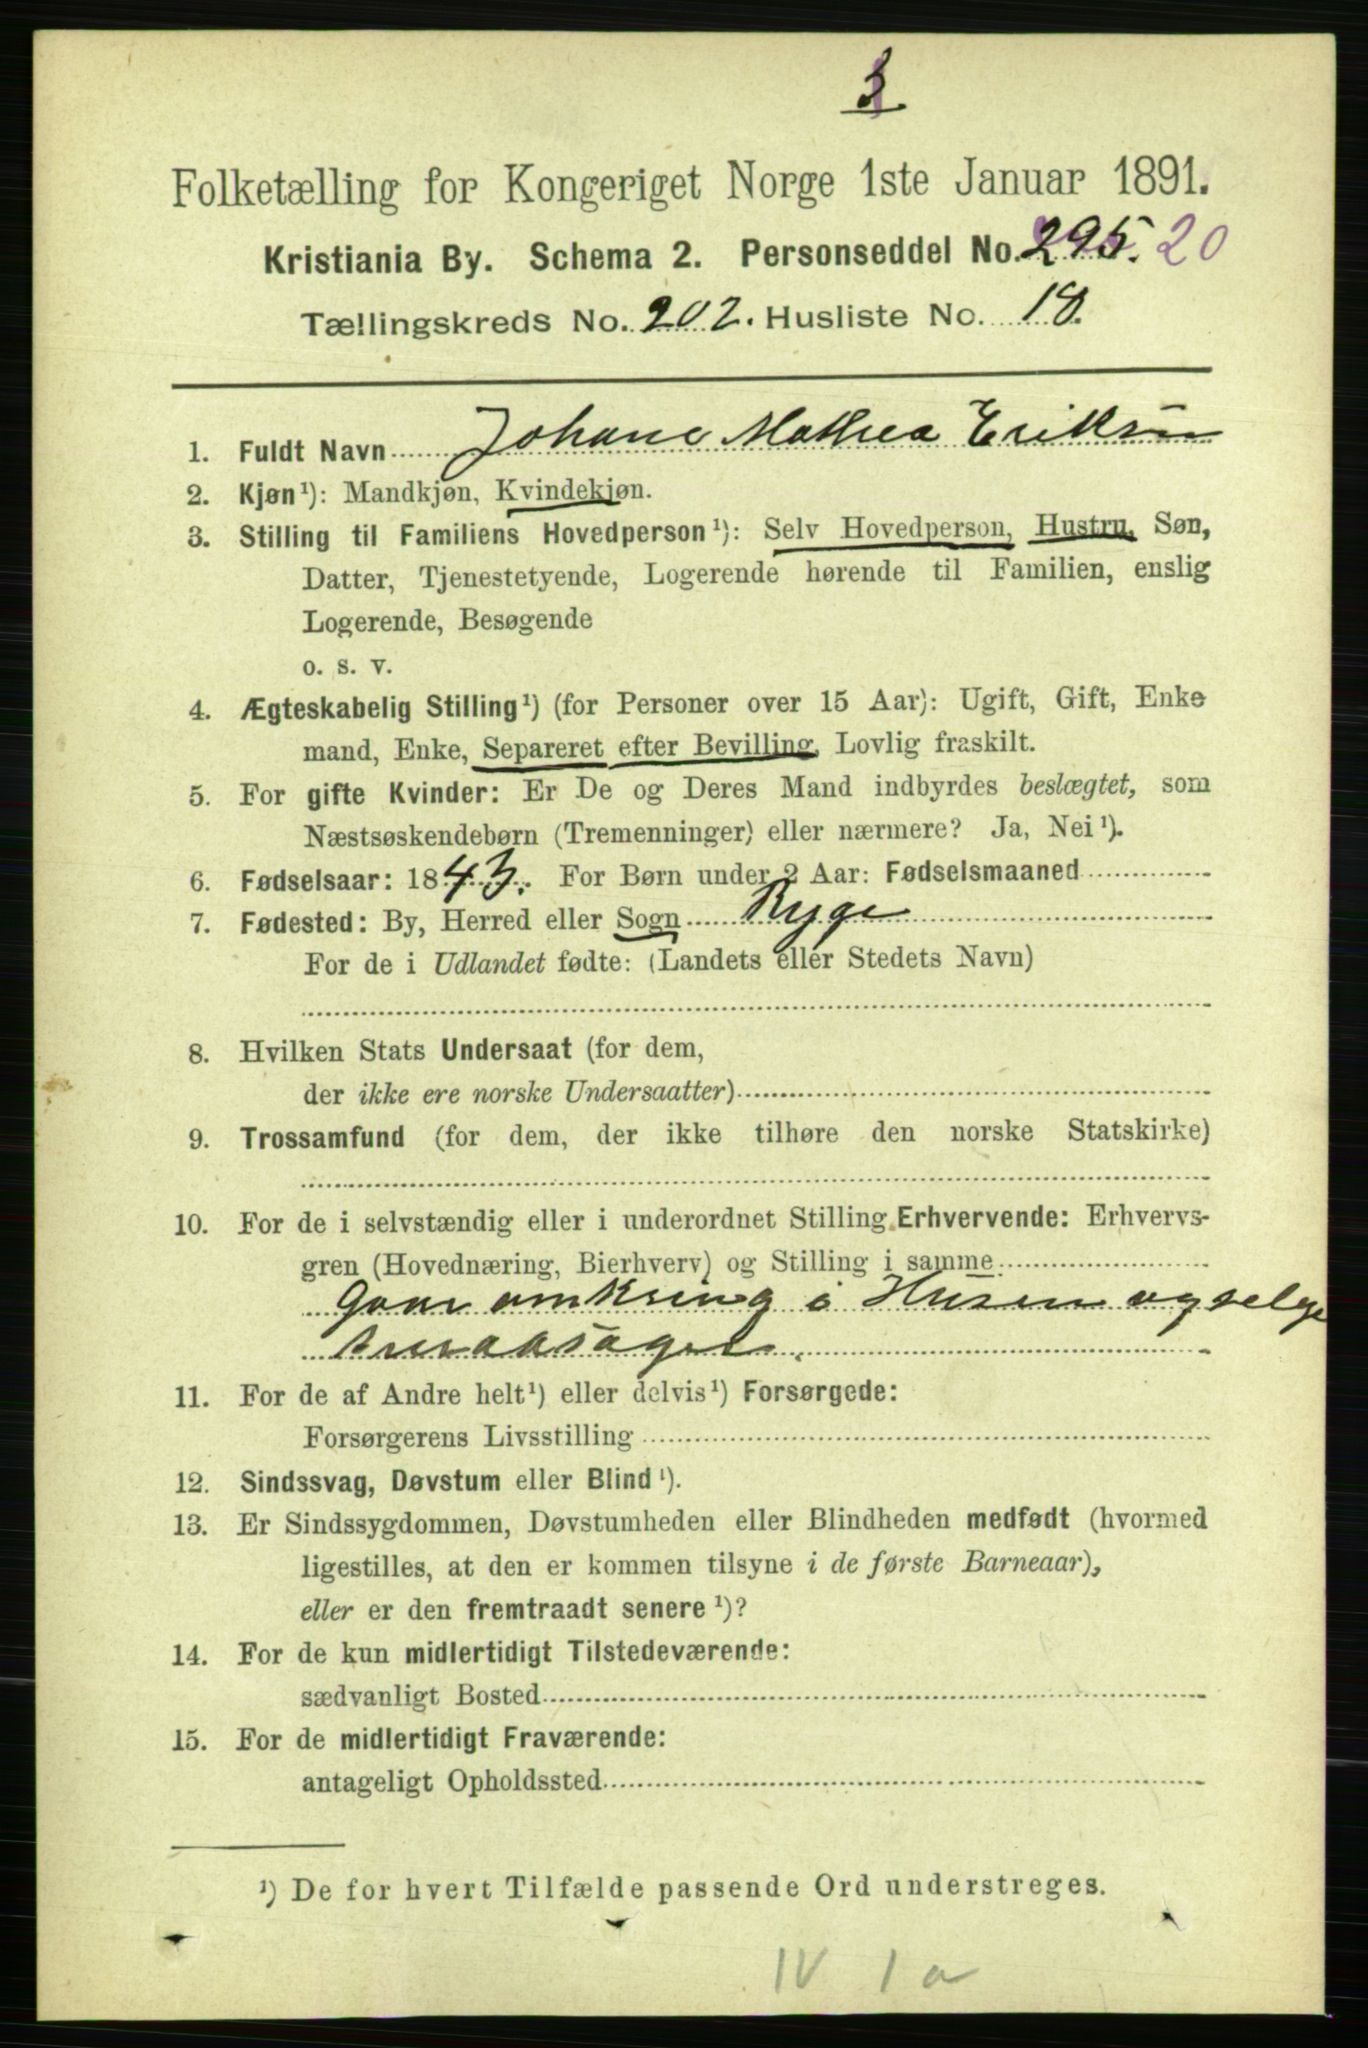 3.
Folketælling for Kongeriget Norge 1ste Januar 1891.
Kristiania By. Schema 2. Personseddel No. 295. 20
Tællingskreds No. 202. Husliste No. 18.
1. Fuldt Navn Johane Mathea Eriksen
2. Kjøn ¹): Mandkjøn, Kvindekjøn.
3. Stilling til Familiens Hovedperson ¹): Selv Hovedperson, Hustru, Søn,
Datter, Tjenestetyende, Logerende hørende til Familien, enslig
Logerende, Besøgende
o. s. v.
4. Ægteskabelig Stilling ¹) (for Personer over 15 Aar): Ugift, Gift, Enke
mand, Enke, Separeret efter Bevilling, Lovlig fraskilt.
5. For gifte Kvinder: Er De og Deres Mand indbyrdes beslægtet, som
Næstsøskendebørn (Tremenninger) eller nærmere? Ja, Nei ¹).
6. Fødselsaar: 1843. For Børn under 2 Aar: Fødselsmaaned
7. Fødested: By, Herred eller Sogn Ryge
For de i Udlandet fødte: (Landets eller Stedets Navn)
8. Hvilken Stats Undersaat (for dem,
der ikke ere norske Undersaatter)
9. Trossamfund (for dem, der ikke tilhøre den norske Statskirke)
10. For de i selvstændig eller i underordnet Stilling Erhvervende: Erhvervs-
gren (Hovednæring, Bierhverv) og Stilling i samme
Gaar omkring i Husene og selge
smaasager.
11. For de af Andre helt ¹) eller delvis ¹) Forsørgede:
Forsørgerens Livsstilling
12. Sindssvag, Døvstum eller Blind ¹).
13. Er Sindssygdommen, Døvstumheden eller Blindheden medfødt (hvormed
ligestilles, at den er kommen tilsyne i de første Barneaar),
eller er den fremtraadt senere ¹)?
14. For de kun midlertidigt Tilstedeværende:
sædvanligt Bosted
15. For de midlertidigt Fraværende:
antageligt Opholdssted
¹) De for hvert Tilfælde passende Ord understreges.
IV 1 a